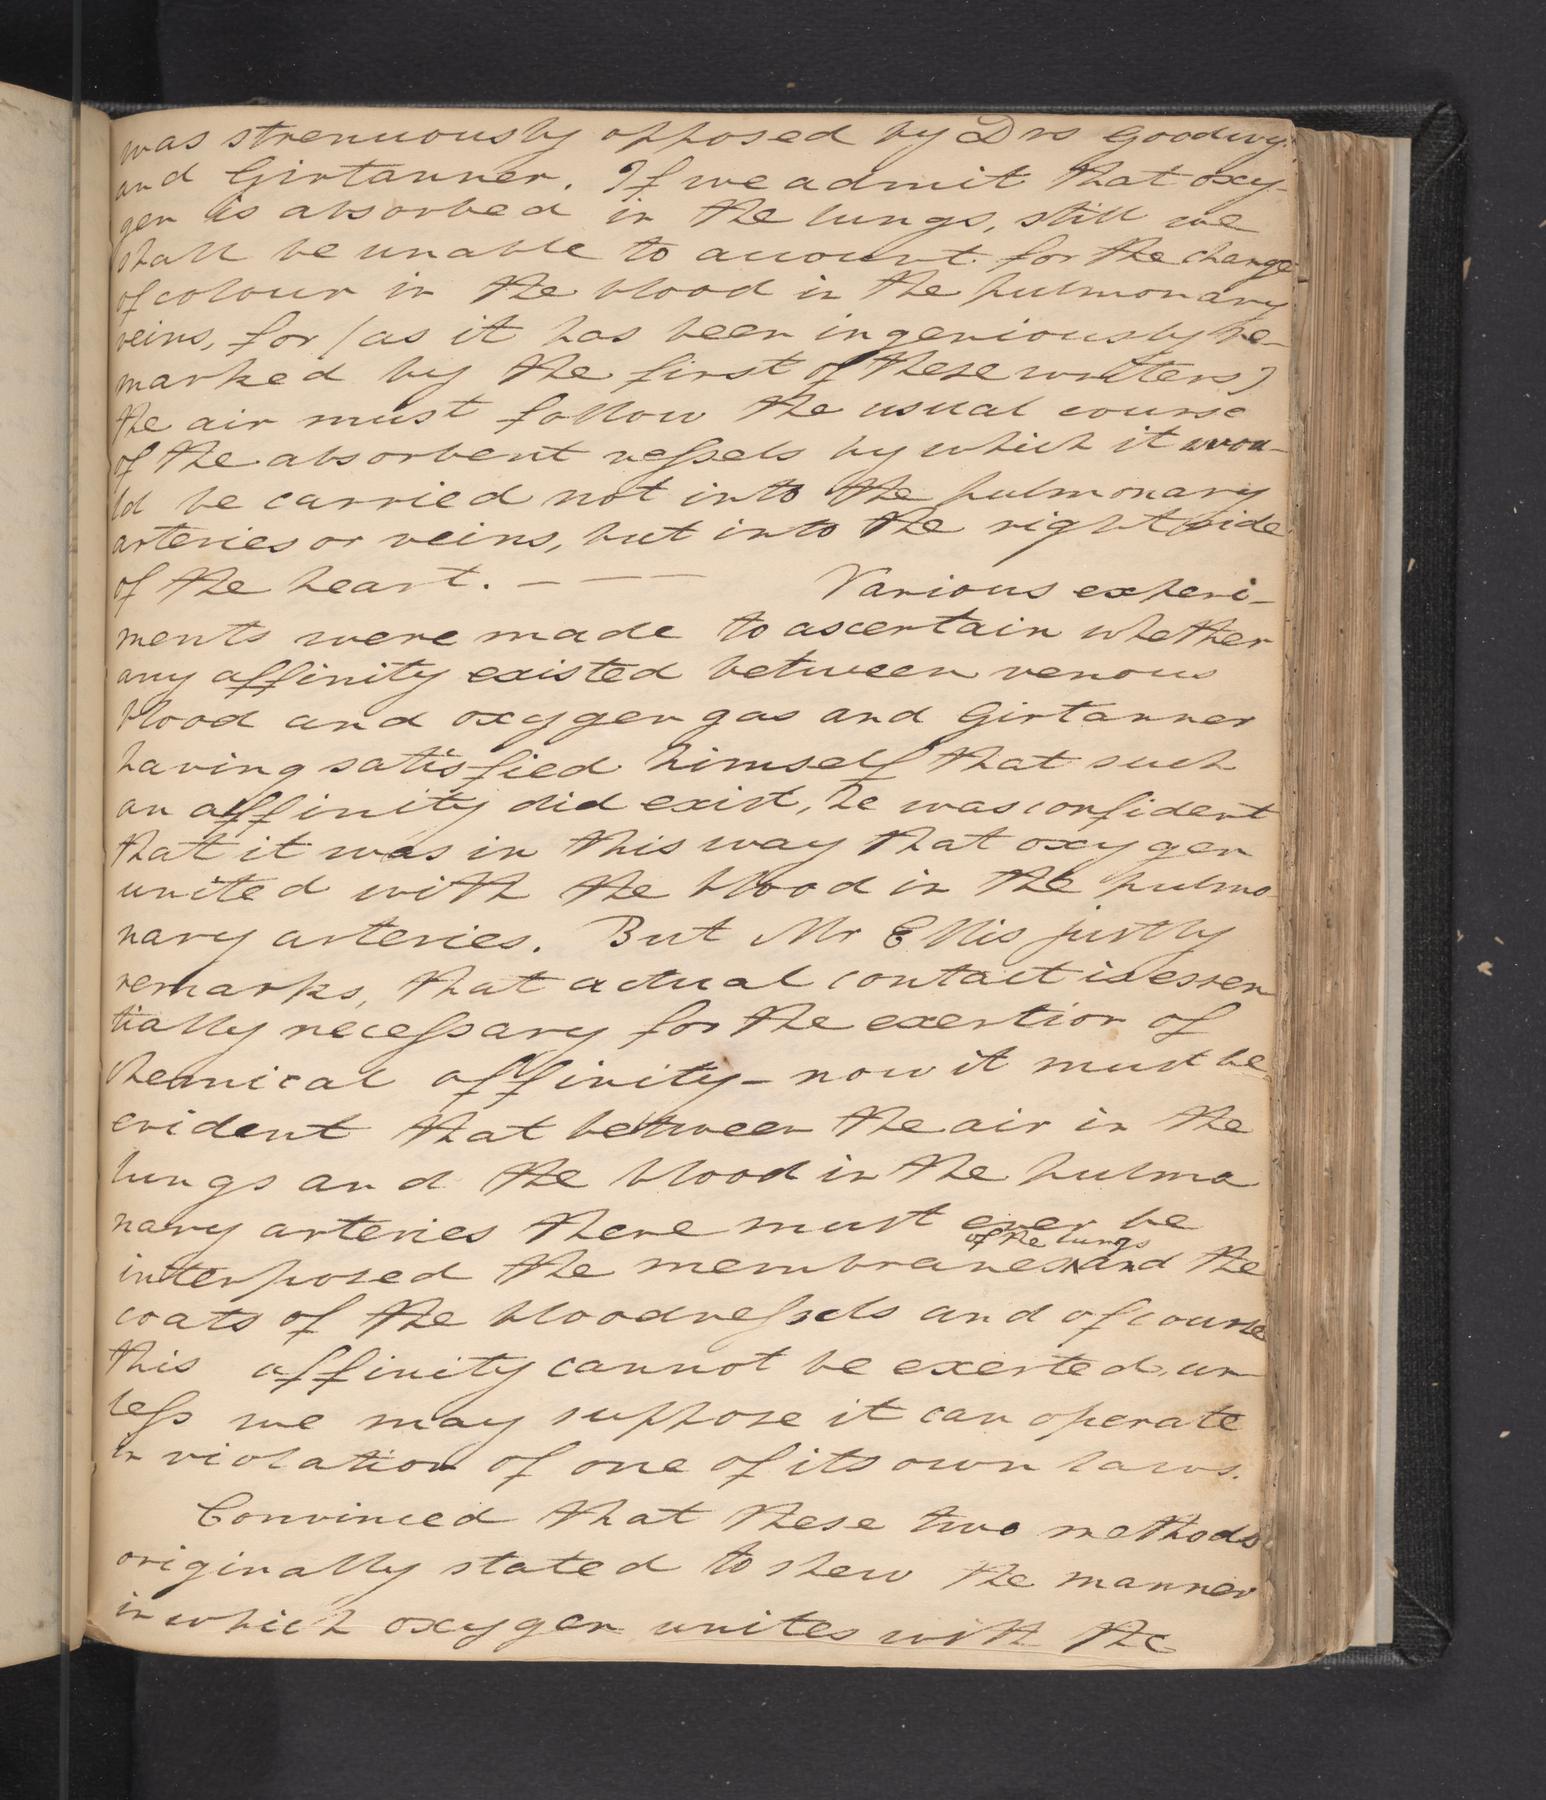 was strenuously opposed by Drs Goodwyn
and Girtanner. If we admit that oxy-
gen is absorbed in the lungs, still we
shall be unable to account for the change
of colour in the blood in the pulmonary
veins, for (as it has been ingeniously re-
marked by the first of these writers)
the air must follow the usual course
of the absorbent vessels by which it wou-
ld be carried not into the pulmonary
arteries or veins, but into the right side
of the heart. — — — Various experi-
ments were made to ascertain whether
any affinity existed between venous
blood and oxygen gas and Girtanner
having satisfied himself that such
an affinity did exist, he was confident
that it was in this way that oxygen
united with the blood in the pulmo
nary arteries. But Mr Ellis justly
remarks, that actual contact is essen
tially necessary for the exertion of
chemical affinity – now it must be
evident that between the air in the
lungs and the blood in the pulmo
nary arteries there must ever be
of the lungs
interposed the membranes ^ and the
coats of the bloodvessels and of course
this affinity cannot be exerted, un
less we may suppose it can operate
in violation of one of its own laws.
Convinced that these two methods
originally stated to shew the manner
in which oxygen unites with the